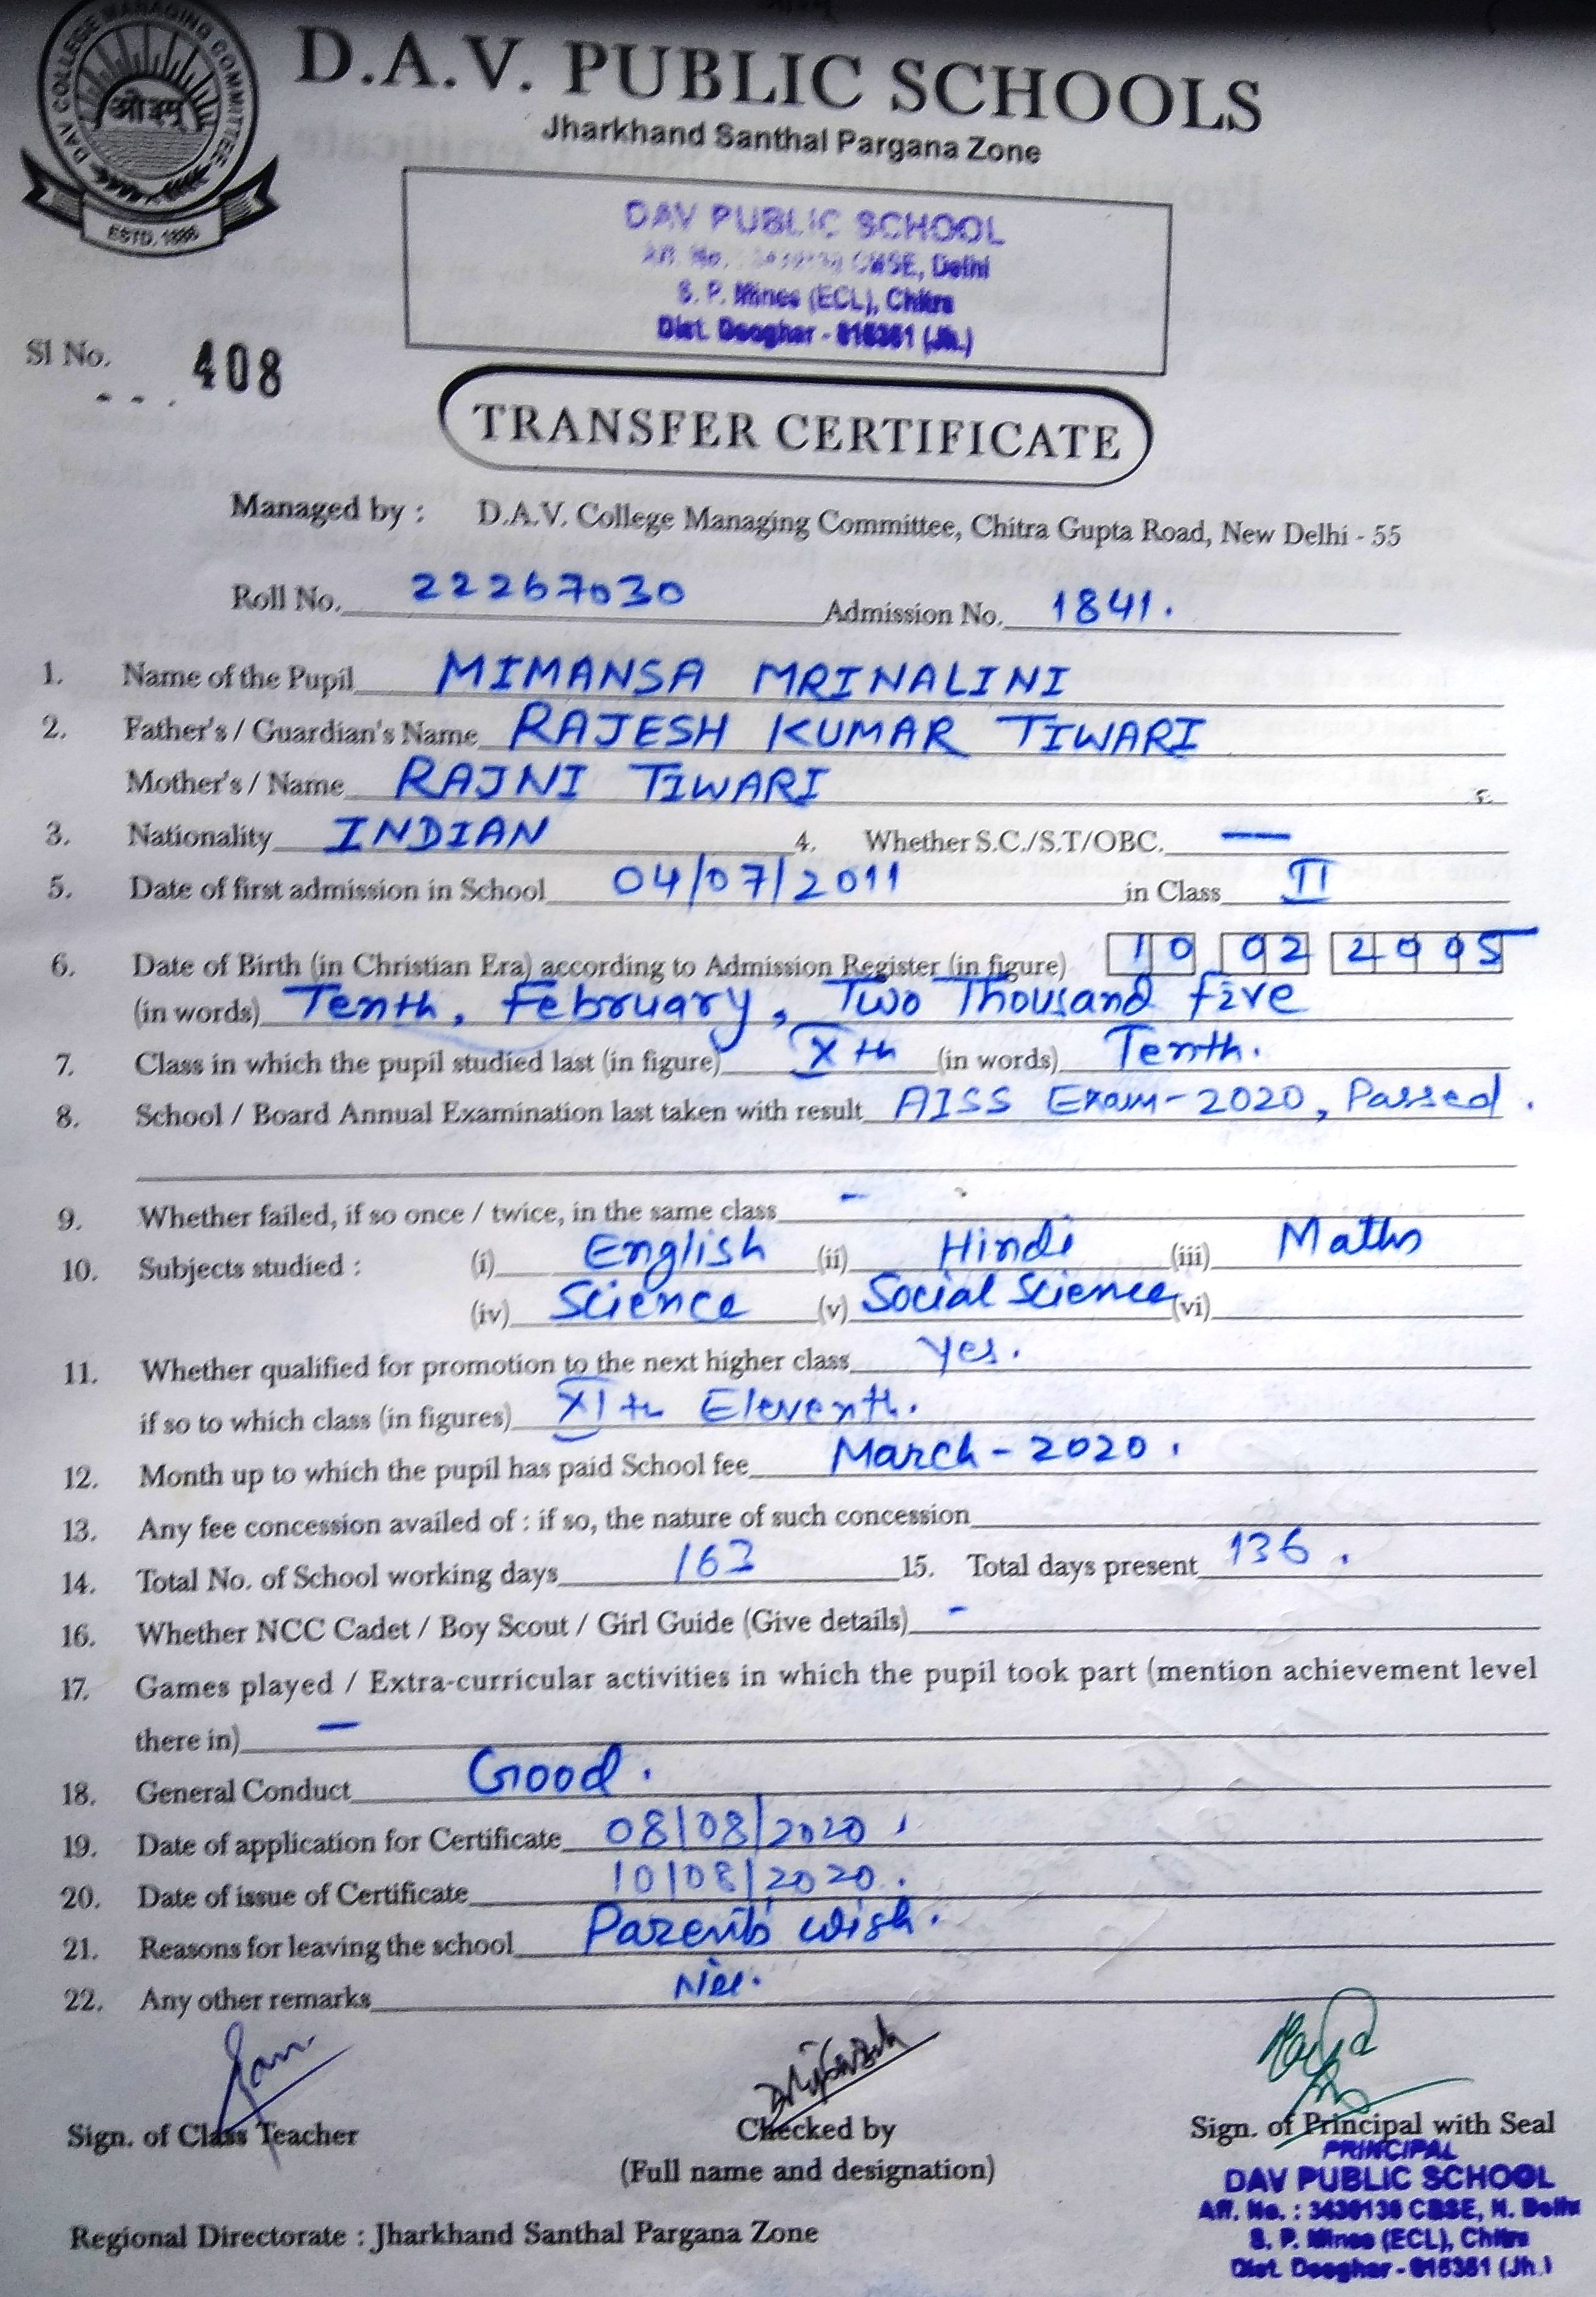 DAV COLLEGE MANAGING COMMITTEE
ओ३म्
ESTD. 1886
D.A.V. PUBLIC SCHOOLS
Jharkhand Santhal Pargana Zone
DAV PUBLIC SCHOOL
Aff. No. : 3430130 CBSE, Delhi
S. P. Mines (ECL), Chitra
Dist. Deoghar - 815351 (Jh.)
Sl No. 408
TRANSFER CERTIFICATE
Managed by : D.A.V. College Managing Committee, Chitra Gupta Road, New Delhi - 55
Roll No. 22267030 Admission No. 1841.
1. Name of the Pupil MIMANSA MRINALINI
2. Father's / Guardian's Name RAJESH KUMAR TIWARI
Mother's / Name RAJNI TIWARI
3. Nationality INDIAN 4. Whether S.C./S.T/OBC. —
5. Date of first admission in School 04/07/2011 in Class II
6. Date of Birth (in Christian Era) according to Admission Register (in figure) 10 02 2005
(in words) Tenth, February, Two Thousand five
7. Class in which the pupil studied last (in figure) Xth (in words) Tenth.
8. School / Board Annual Examination last taken with result AISS Exam-2020, Passed.
9. Whether failed, if so once / twice, in the same class -
10. Subjects studied : (i) English (ii) Hindi (iii) Maths
(iv) Science (v) Social Science (vi)
11. Whether qualified for promotion to the next higher class yes.
if so to which class (in figures) XIth Eleventh.
12. Month up to which the pupil has paid School fee March-2020.
13. Any fee concession availed of : if so, the nature of such concession
14. Total No. of School working days 163 15. Total days present 136.
16. Whether NCC Cadet / Boy Scout / Girl Guide (Give details) -
17. Games played / Extra-curricular activities in which the pupil took part (mention achievement level
there in) —
18. General Conduct Good.
19. Date of application for Certificate 08/08/2020.
20. Date of issue of Certificate 10/08/2020.
21. Reasons for leaving the school Parents wish.
22. Any other remarks Nil.
Sign. of Class Teacher Checked by Sign. of Principal with Seal
(Full name and designation)
PRINCIPAL
DAV PUBLIC SCHOOL
Aff. No. : 3430130 CBSE, N. Delhi
S. P. Mines (ECL), Chitra
Dist. Deoghar - 815351 (Jh.)
Regional Directorate : Jharkhand Santhal Pargana Zone